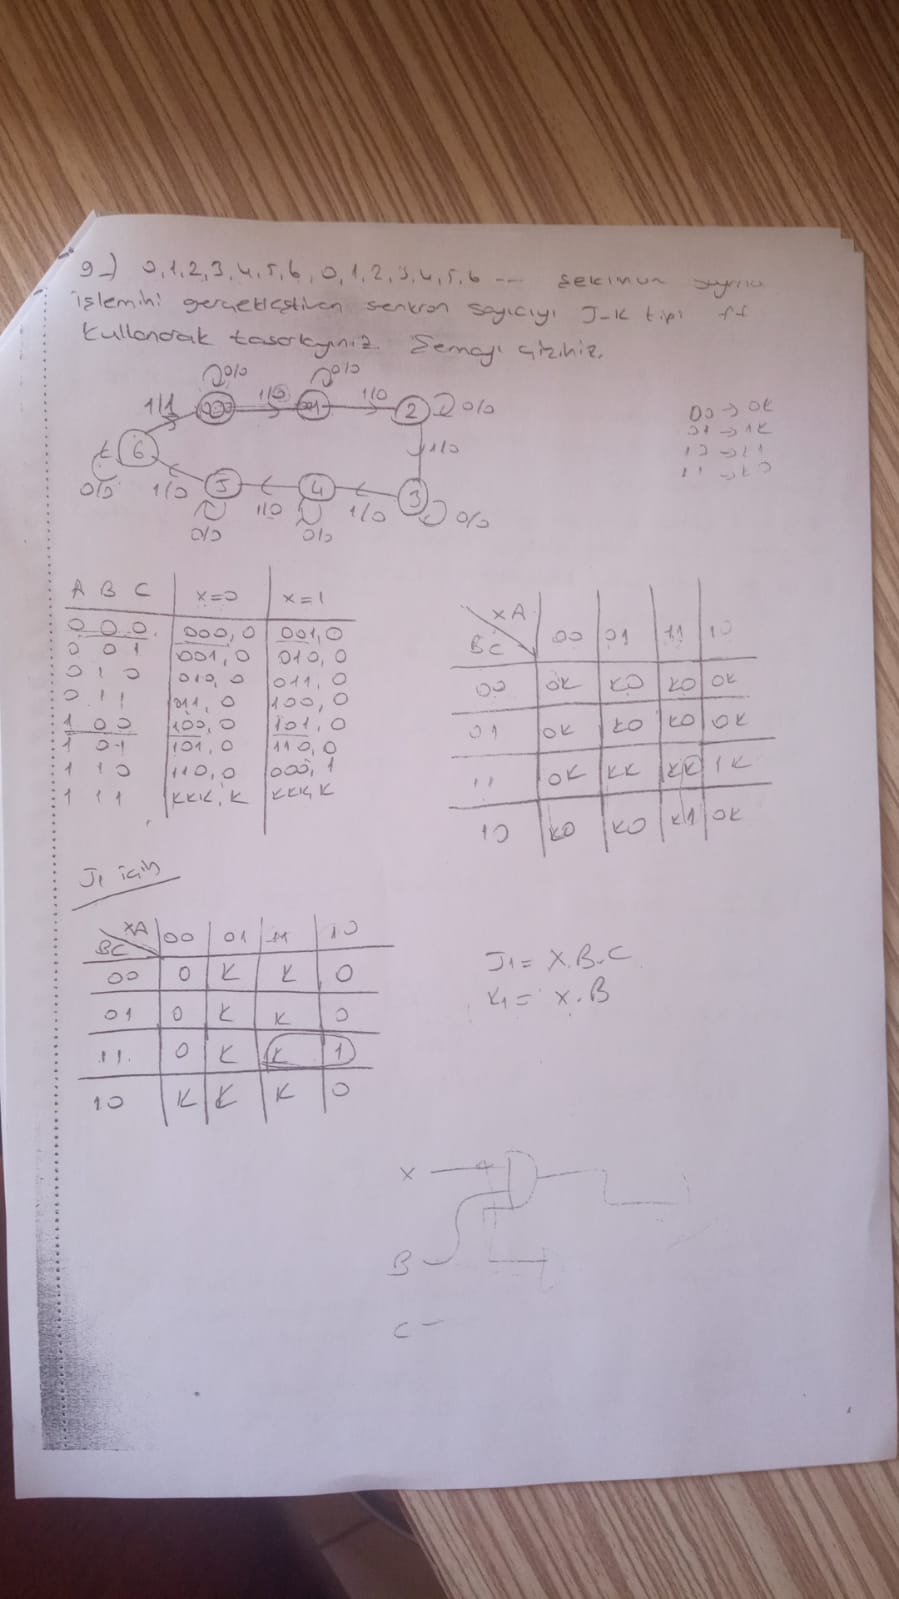 9-) 0,1,2,3,4,5,6,0,1,2,3,4,5,6 --- şeklinde sayma
işlemini gerçekleştiren senkron sayıcıyı J-K tipi ff
kullanarak tasarlayınız. Şemayı çiziniz.
0/0 0/0
1/1 000 1/0 001 1/0 2 0/0
6 1/0
0/0 1/0 5 1/0 4 1/0 3 0/0
0/0 0/0
00 → 0K
01 → 1K
10 → K1
11 → K0
A B C x=0 x=1
0 0 0 000,0 001,0
0 0 1 001,0 010,0
0 1 0 010,0 011,0
0 1 1 011,0 100,0
1 0 0 100,0 101,0
1 0 1 101,0 110,0
1 1 0 110,0 000,1
1 1 1 KKK,K KKK,K
XA
BC 00 01 11 10
00 0K K0 K0 0K
01 0K K0 K0 0K
11 0K KK KK 1K
10 K0 K0 K1 0K
J1 için
XA
BC 00 01 11 10
00 0 K K 0
01 0 K K 0
11. 0 K K 1
10 K K K 0
J1 = X.B.C
K1 = X.B
X
B
C